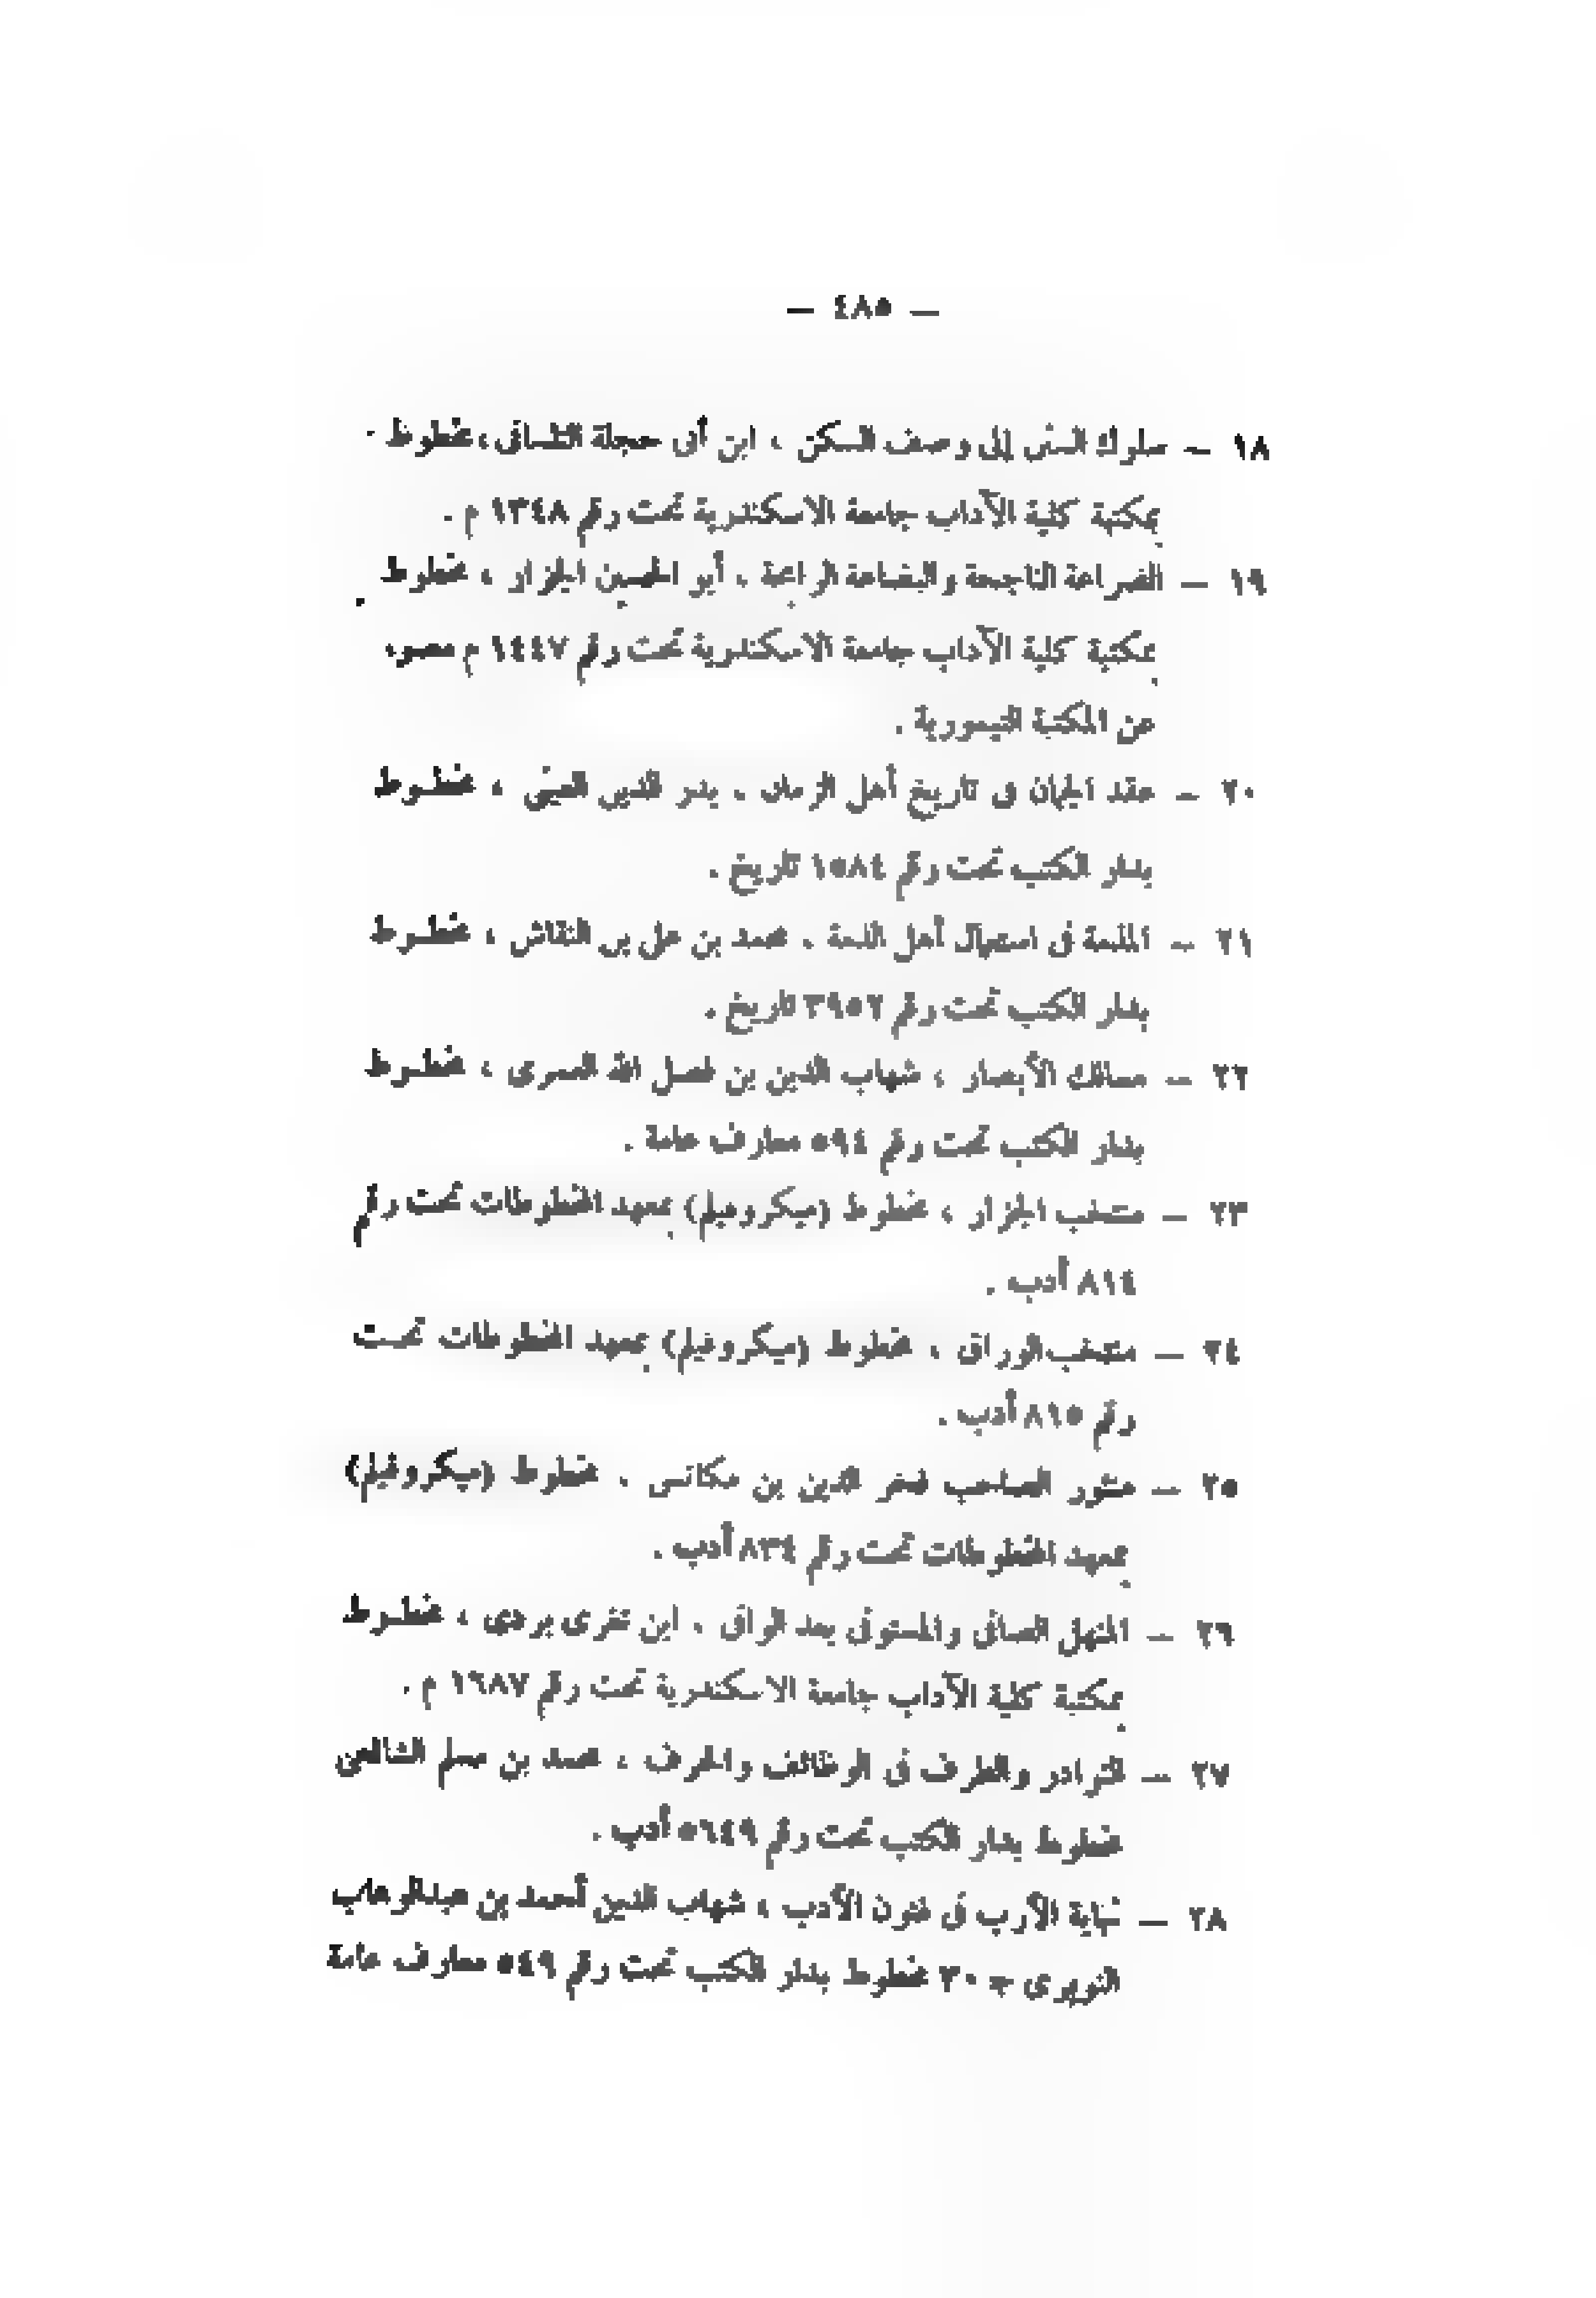 — ٤٨٥ —
١٨ — سلوك السنن إلى وصف السكن ، ابن أبى حجلة التلمسانى ، مخطوط
بمكتبة كلية الآداب جامعة الاسكندرية تحت رقم ١٣٤٨ م .
١٩ — الضراعة الناجحة والبضاعة الرابحة . أبو الحسين الجزار ، مخطوط
بمكتبة كلية الآداب جامعة الاسكندرية تحت رقم ١٤٤٧ م مصور
عن المكتبة التيمورية .
٢٠ — عقد الجمان فى تاريخ أهل الزمان . بدر الدين العينى ، مخطوط
بدار الكتب تحت رقم ١٥٨٤ تاريخ .
٢١ — المذمة فى استعمال أهل الذمة . محمد بن على بن النقاش ، مخطوط
بدار الكتب تحت رقم ٣٩٥٢ تاريخ .
٢٢ — مسالك الأبصار ، شهاب الدين بن فضل الله العمرى ، مخطوط
بدار الكتب تحت رقم ٥٩٤ معارف عامة .
٢٣ — منتخب الجزار ، مخطوط (ميكروفيلم) بمعهد المخطوطات تحت رقم
٨١٤ أدب .
٢٤ — منتخب الوراق ، مخطوط (ميكروفيلم) بمعهد المخطوطات تحت
رقم ٨١٥ أدب .
٢٥ — منثور الصاحب فخر الدين بن مكانس . مخطوط (ميكروفيلم)
بمعهد المخطوطات تحت رقم ٨٣٤ أدب .
٢٦ — المنهل الصافى والمستوفى بعد الوافى . ابن تغرى بردى ، مخطوط
بمكتبة كلية الآداب جامعة الاسكندرية تحت رقم ١٦٨٧ م .
٢٧ — النوادر والطرف فى الوظائف والحرف ، محمد بن مسلم الشافعى
مخطوط بدار الكتب تحت رقم ٥٦٤٩ أدب .
٢٨ — نهاية الأرب فى فنون الأدب ، شهاب الدين أحمد بن عبدالوهاب
النويرى ج ٣٠ مخطوط بدار الكتب تحت رقم ٥٤٩ معارف عامة